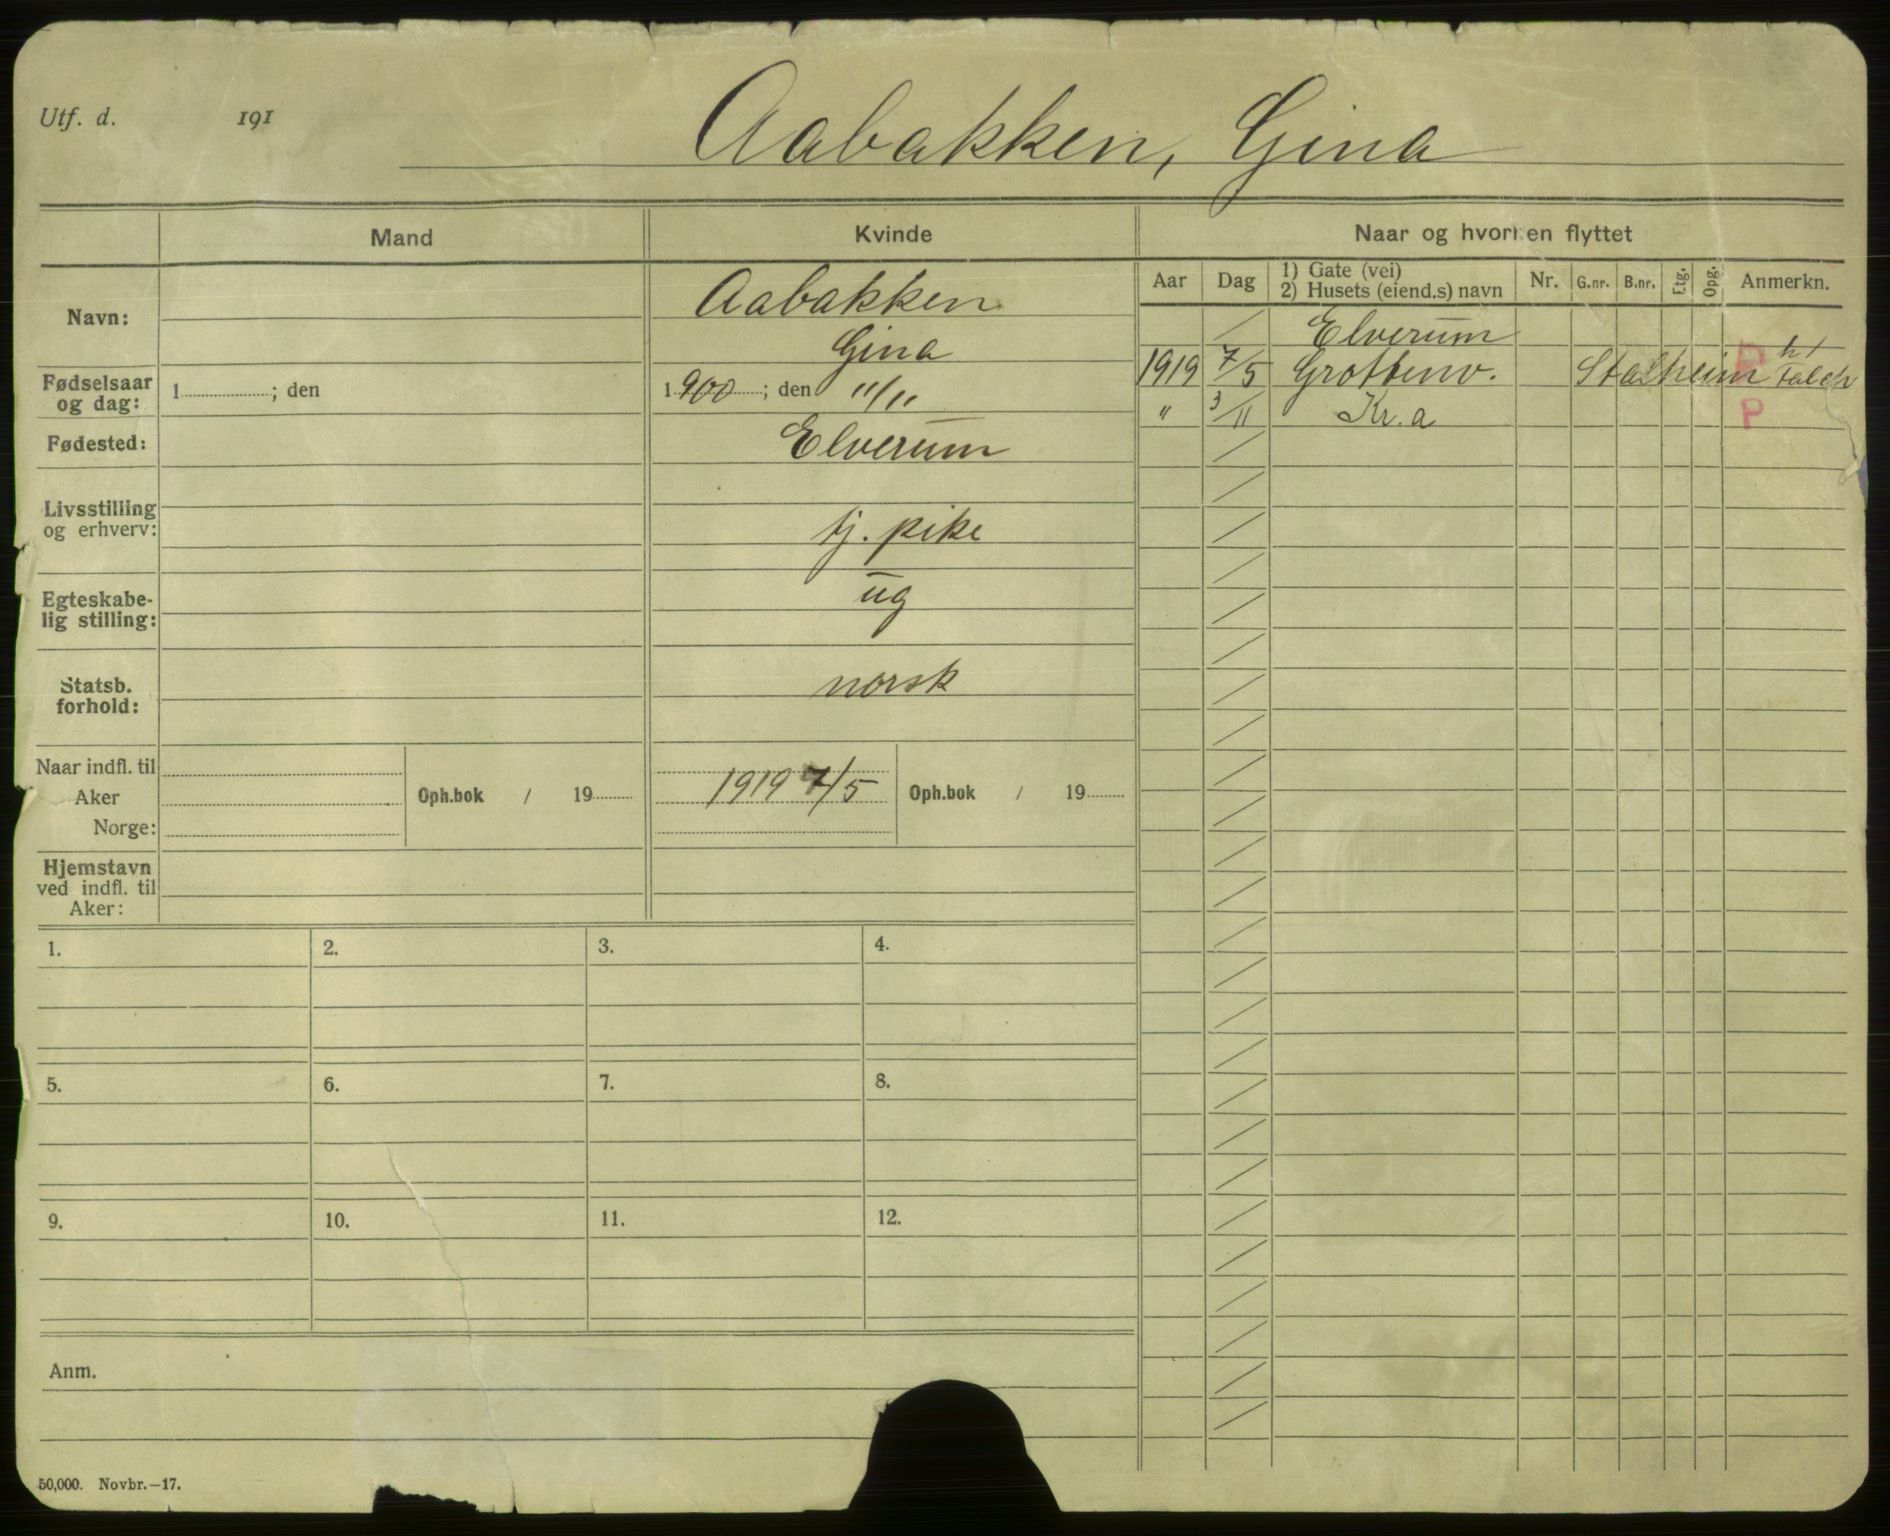 Utf. d. 191
Aabakken, Gina
Mand
Kvinde
Naar og hvorhen flyttet
Aar Dag 1) Gate (vei) 2) Husets (eiend.s) navn Nr. G.nr. B.nr. Etg. Opg. Anmerkn.
Navn:
Aabakken
Gina
Fødselsaar og dag:
1 ; den
1900 ; den 11/11
Fødested:
Elverum
Livsstilling og erhverv:
tj. pike
Egteskabe-
lig stilling:
ug
Statsb. forhold:
norsk
Naar indfl. til
Aker
Norge:
Oph.bok / 19
1919 7/5
Oph.bok / 19
Hjemstavn
ved indfl. til
Aker:
Elverum
1919 7/5 Grottenv. Stalheim h/ Falch
" 3/11 Kr.a P
1. 2. 3. 4.
5. 6. 7. 8.
9. 10. 11. 12.
Anm.
50,000. Novbr.—17.